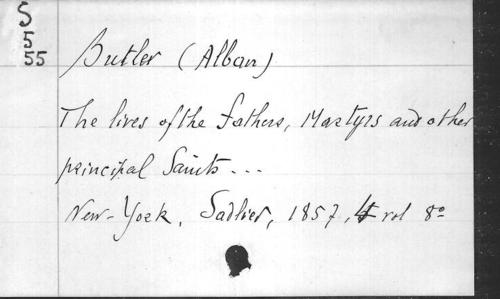 S
5
55
Butler (Alban)
The lives of the Fathers, Martyrs and other
principal Saints ...
New-York, Sadlier, 1857, 4 vol 8º